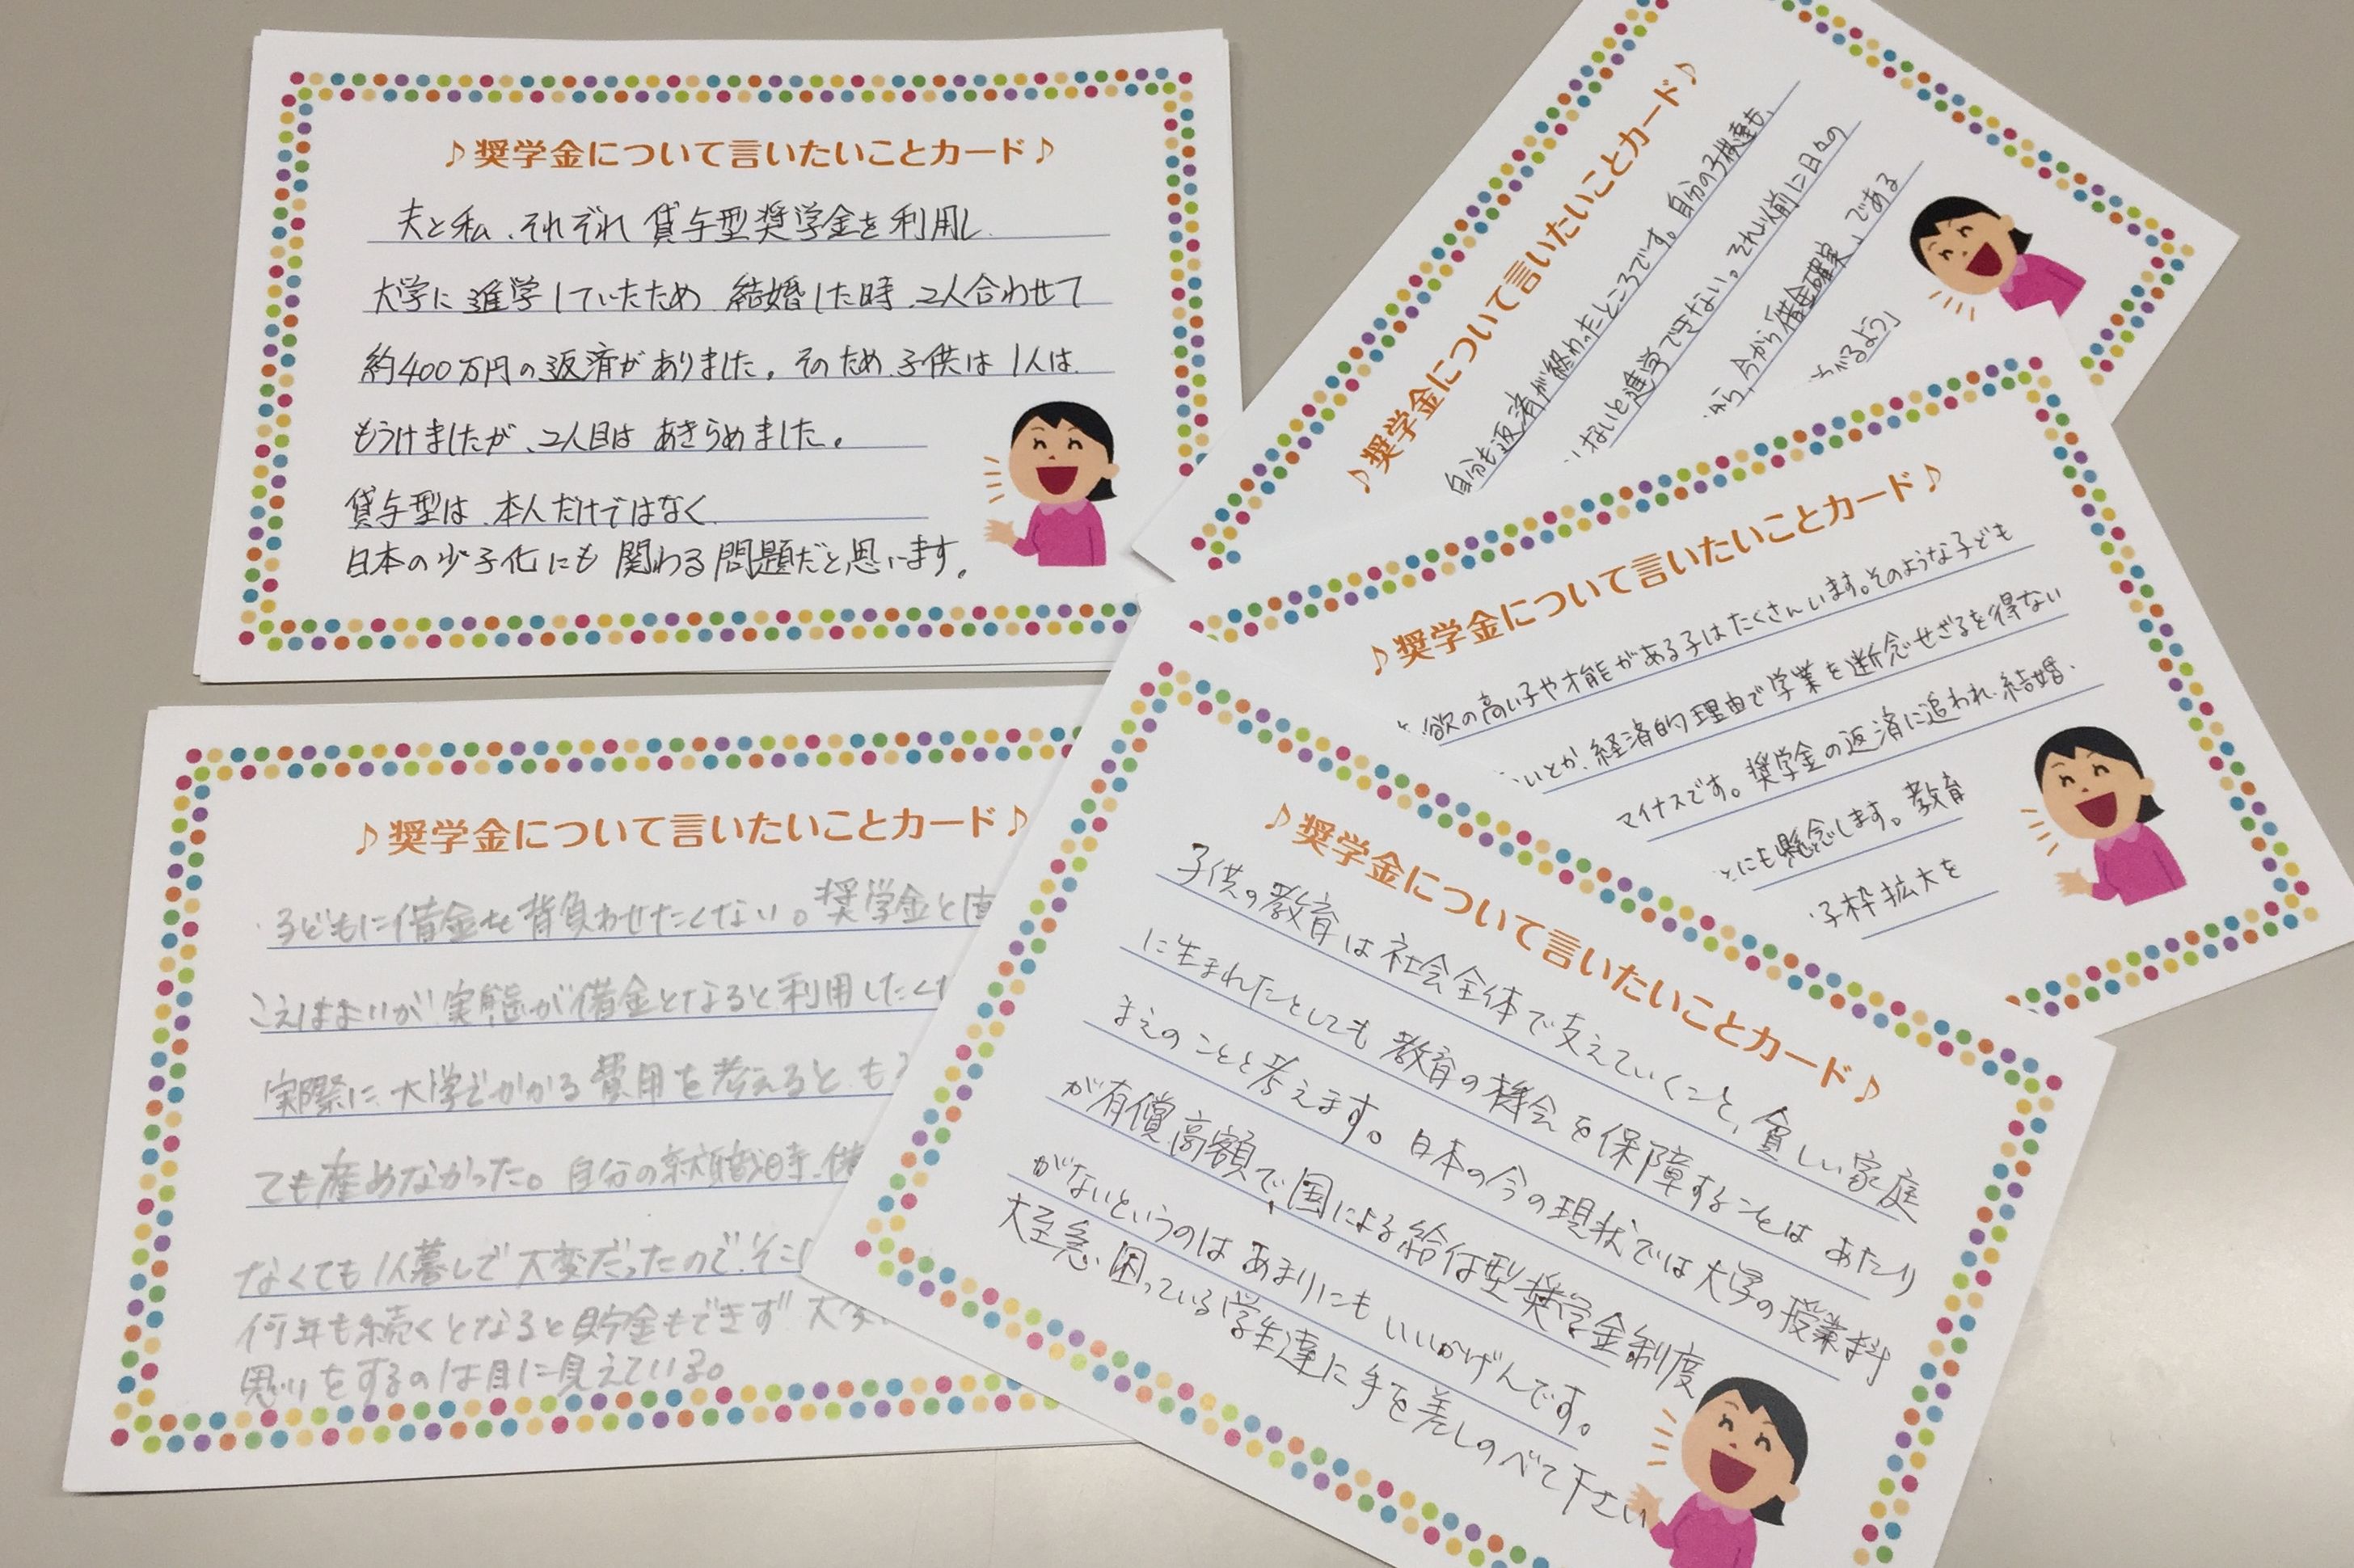 ♪奨学金について言いたいことカード♪
夫と私、それぞれ貸与型奨学金を利用し
大学に進学していたため、結婚した時、2人合わせて
約400万円の返済がありました。そのため、子供は1人は
もうけましたが、2人目はあきらめました。
貸与型は、本人だけではなく
日本の少子化にも関わる問題だと思います。
♪奨学金について言いたいことカード♪
自分も返済が終わったところです。自分の子供達も、
ないと進学できない。それ以前に日々の
から、今から「借金確実」である
がるよう」
♪奨学金について言いたいことカード♪
欲の高い子や才能がある子はたくさんいます。そのような子ども
いとか、経済的理由で学業を断念せざるを得ない
マイナスです。奨学金の返済に追われ、結婚、
とにも懸念します。教育
子枠拡大を
♪奨学金について言いたいことカード♪
子どもに借金を背負わせたくない。奨学金と
こえはよいが、実態が借金となると利用したく
実際に、大学でかかる費用を考えると、も
ても産めなかった。自分の就職時、借
なくても1人暮しで大変だったので、そこ
何年も続くとなると貯金もできず、大変
思いをするのは目に見えている。
♪奨学金について言いたいことカード♪
子供の教育は社会全体で支えていくこと、貧しい家庭
に生まれたとしても教育の機会を保障することはあたり
まえのことと考えます。日本の今の現状では大学の授業料
が有償、高額で、国による給付型奨学金制度
がないというのはあまりにもいいかげんです。
大至急、困っている学生達に手を差しのべて下さい